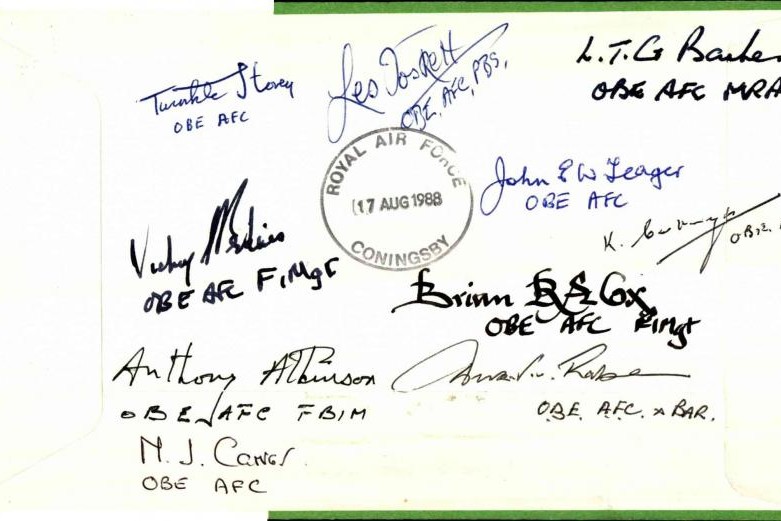 Twinkle Storey
OBE AFC
Les Toskett
OBE, AFC, PBS,
L.T.G Barke
OBE AFC MRA
ROYAL AIR FORCE
17 AUG 1988
CONINGSBY
John E W Teager
OBE AFC
K.
OBE
Vicky
OBE AFC F,Mgt
Brian R S Cox
OBE AFC FIMgt
Anthony Atkinson
OBE, AFC FBIM
OBE. AFC. x BAR.
N. J.
OBE AFC